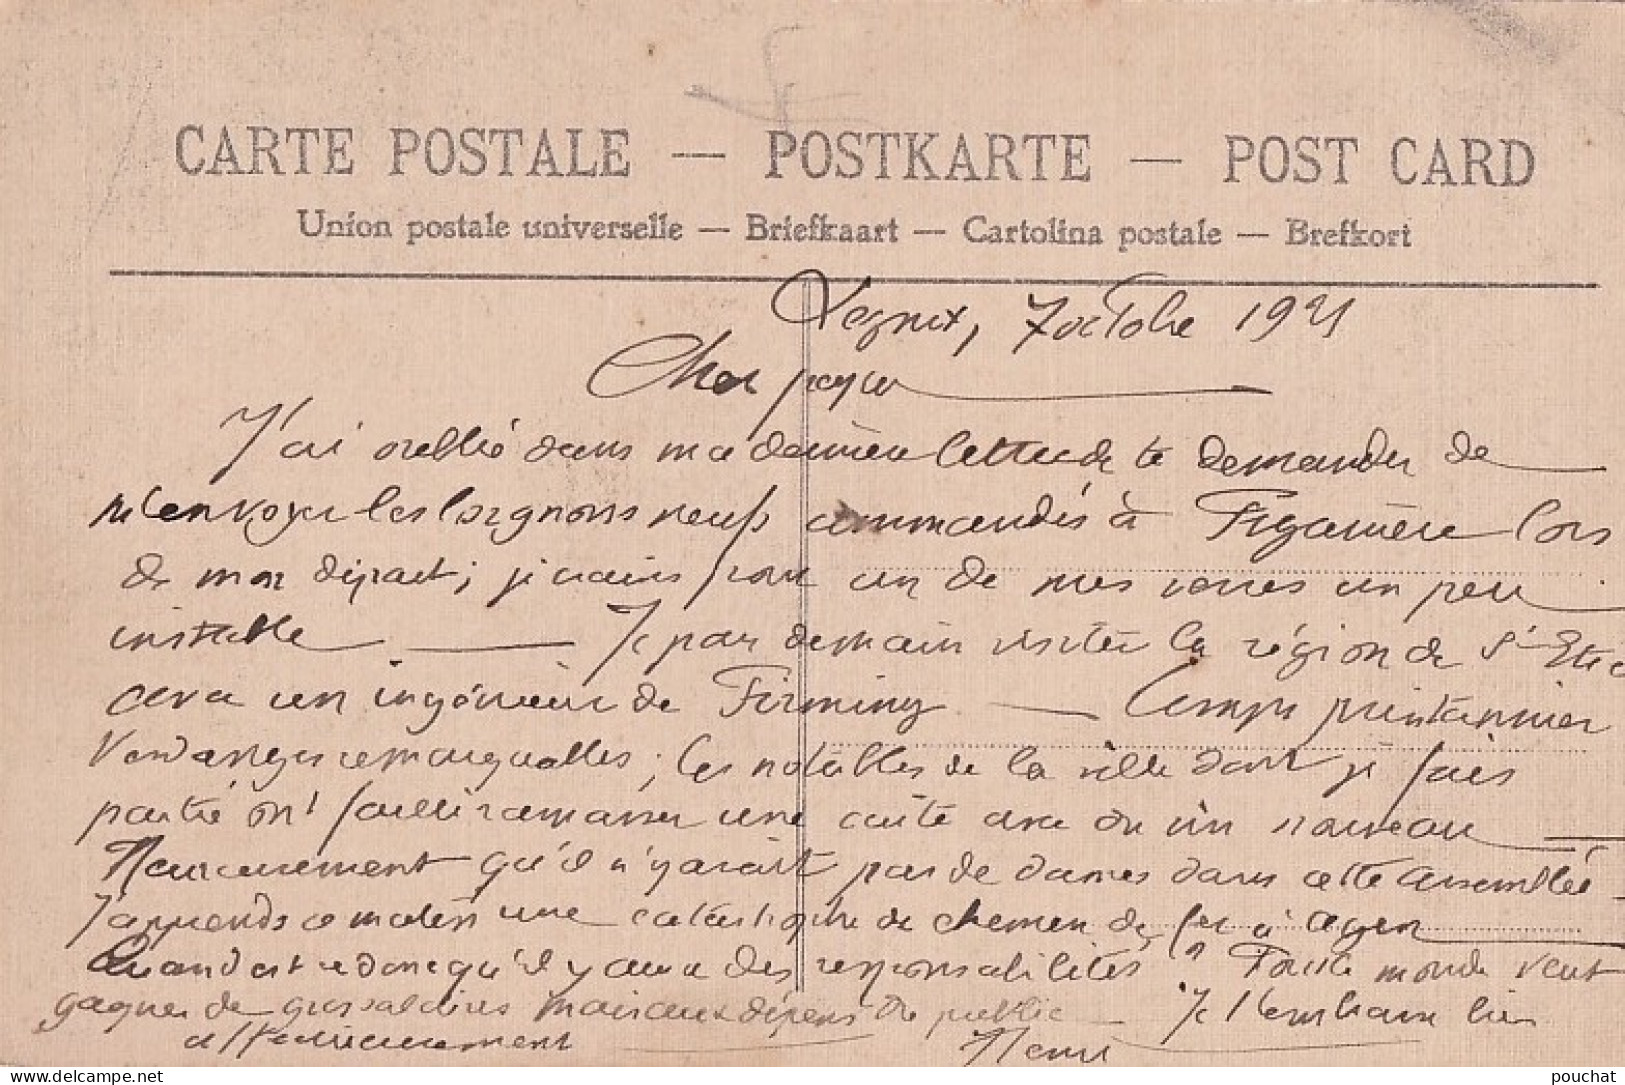 CARTE POSTALE — POSTKARTE — POST CARD
Union postale universelle — Briefkaart — Cartolina postale — Brefkort
7 octobre 1921
Cher papa
J'ai oublié dans ma dernière lettre de te demander de
m'envoyer les lorgnons neufs commandés à Figarière lors
de mon départ; je crains pour un de mes verres un peu
instable — Je pars demain visiter la région de St Etie
avec un ingénieur de Firminy — Temps printannier
Vendanges remarquables; les notables de la ville dont je fais
partie ont failli ramasser une cuite avec du vin nouveau
Heureusement qu'il n'y avait pas de dames dans cette assemblée
J'apprends ce matin une catastrophe de chemin de fer à Agen
Quand est ce donc qu'il y aura des responsabilités? Tout le monde veut
gagner de gros salaires mais aux dépens du public — Je t'embrasse bien
affectueusement Henri
pouchat